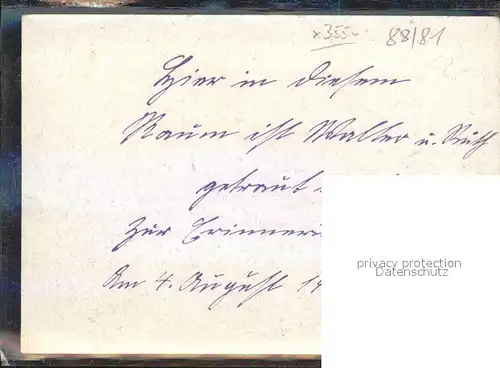 x355.-
88/81
Hier in diesem
Raum ist Walter u. Ruth
getraut.
Zur Erinneru
Am 4. August 19
privacy protection
Datenschutz